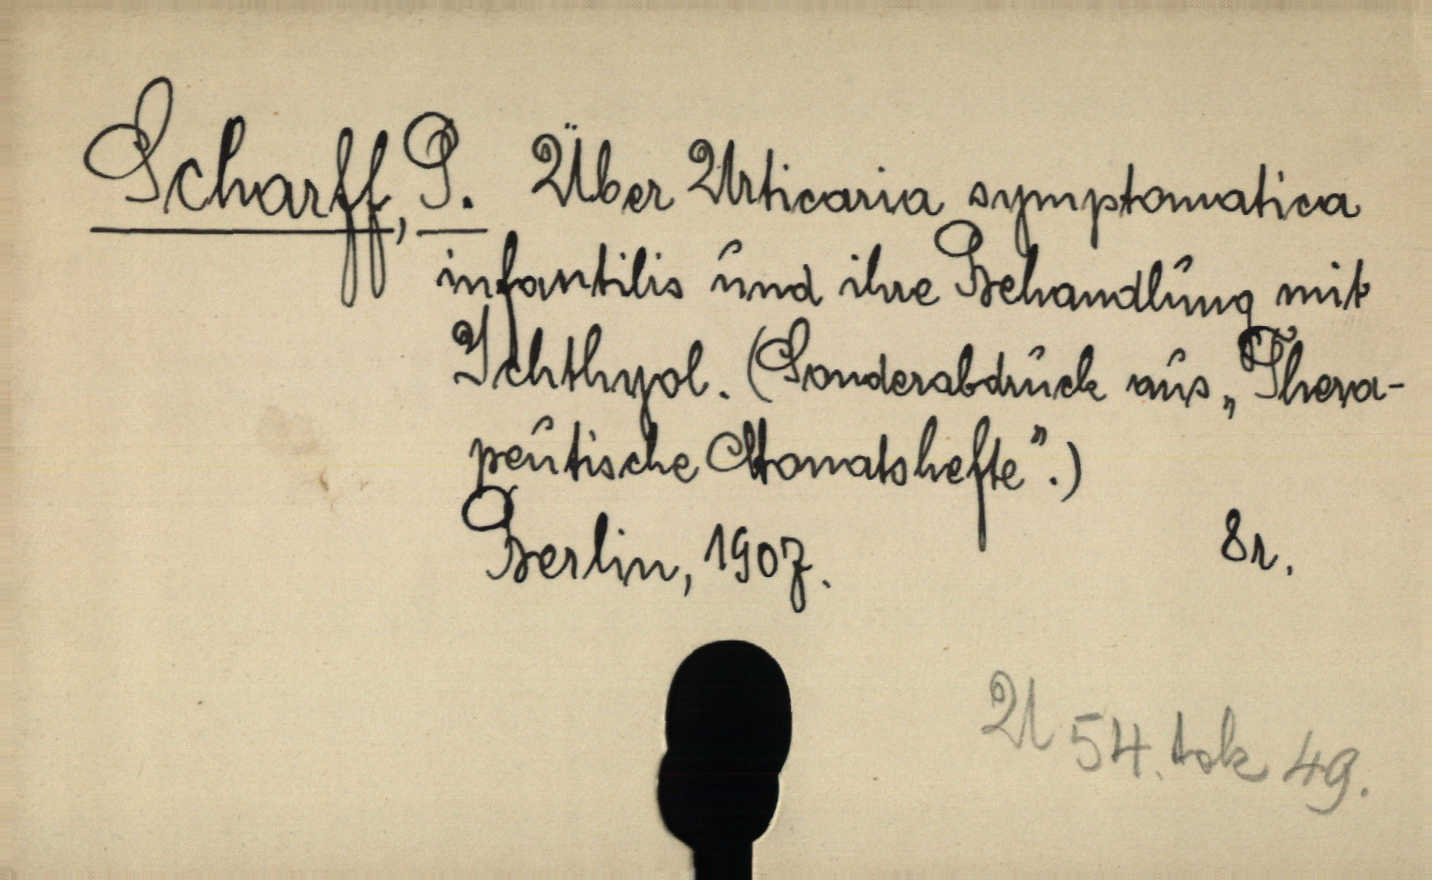 Scharff, P. Über Urticaria symptomatica
infantilis und ihre Behandlung mit
Ichthyol. (Sonderabdruck aus „Thera-
peutische Monatshefte".)
Berlin, 1907. 8r.
U 54. tok 49.